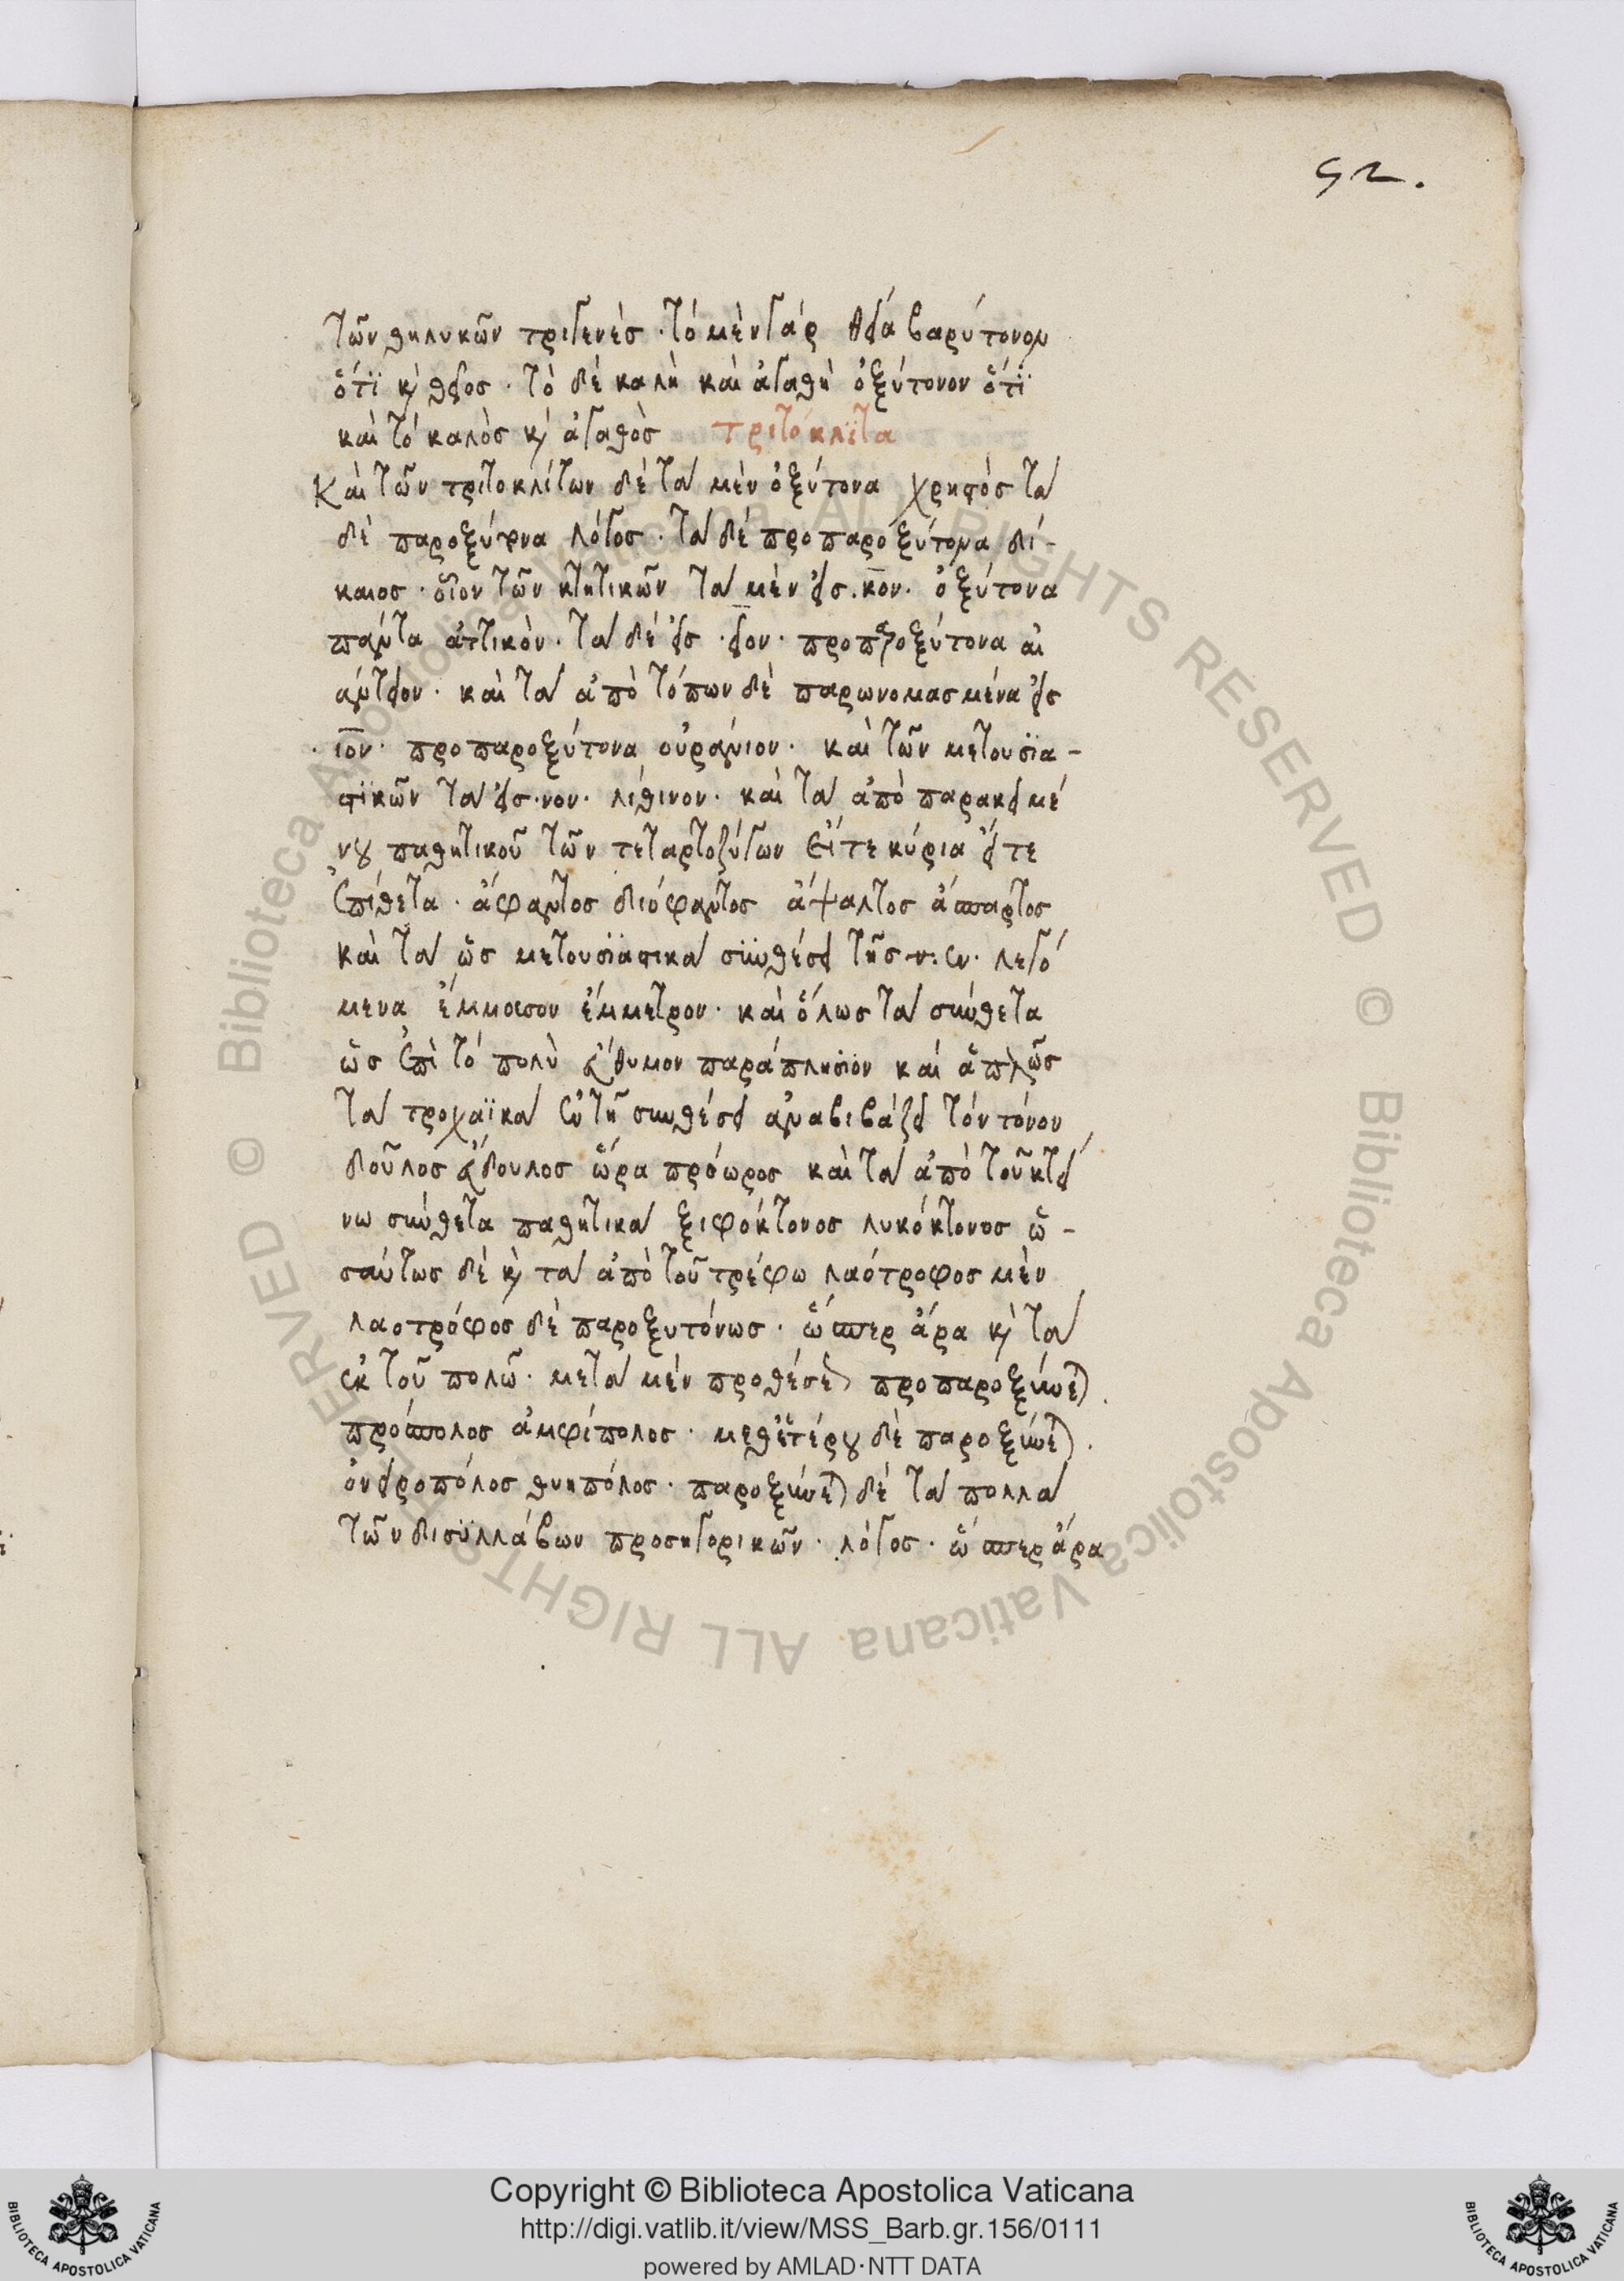 52.
τῶν θηλυκῶν τριγενές · τὸ μὲν γάρ θεία βαρύτονον
ὅτϊ κ̀ θεῖος · τὸ δέ καλὴ καὶ ἀγαθὴ ὀξύτονον ὅτϊ
καὶ τό καλὸς κ̀ ἀγαθὸς τριτόκλϊτα
Καὶ τῶν τριτοκλίτων δέ τὰ μὲν ὀξύτονα χρηστὸς τὰ
δὲ παροξύτονα λόγος · τὰ δὲ προπαροξύτονα δί-
καιος · οἷον τῶν κτητικῶν τὰ μὲν εἰς · κον · ὀξύτονα
πάντα ἀττικὸν · τὰ δέ εἰς · ειον · προπαροξύτονα αἰ
άντειον · καὶ τὰ ἀπὸ τόπων δὲ παρωνομασμένα εἰς
· ιον · προπαροξύτονα οὐράνιον · καὶ τῶν μετουσϊα-
στϊκῶν τὰ εἰς · νον · λίθινον · καὶ τὰ ἀπὸ παρακειμέ
νου παθητικοῦ τῶν τεταρτοζύγων εἴτε κύρια εἴτε
ἐπίθετα · ἄφαντος διόφαντος ἄψαλτος ἄσπαρτος
καὶ τὰ ὡς μετουσϊαστικὰ συνθέσει τῆς · λεγό
μενα ἔμμουσον ἔμμετρον · καὶ ὅλως τὰ σύνθετα
ὡς ἐπὶ τὸ πολὺ εὔθυμον παράπλησϊον καὶ ἁπλῶς
τὰ τροχαϊκὰ ἐν τῇ συνθέσει ἀναβιβάζει τόν τόνον
δοῦλος εὔδουλος ὥρα πρόωρος καὶ τὰ ἀπὸ τοῦ κτεί
νω σύνθετα παθητικὰ ξιφόκτονος λυκόκτονος ὡ-
σαύτως δὲ κ̀ τὰ ἀπὸ τοῦ τρέφω λαότροφος μὲν
λαοτρόφος δὲ παροξυτόνως · ὥσπερ ἄρα κ̀ τὰ
ἐκ τοῦ πολῶ · μετὰ μὲν προθέσεως προπαροξύνεται
πρόσπολος ἀμφίπολος · μεθετέρου δὲ παροξύνεται ·
ὀνειροπόλος θυηπόλος · παροξύνεται δέ τὰ πολλὰ
τῶν δισϋλλάβων προσηγορικῶν · λόγος · ὥσπερ ἄρα
© Biblioteca Apostolica Vaticana ALL RIGHTS RESERVED © Biblioteca Apostolica Vaticana ALL RIGHTS RESERVED
Copyright © Biblioteca Apostolica Vaticana
http://digi.vatlib.it/view/MSS_Barb.gr.156/0111
powered by AMLAD·NTT DATA
BIBLIOTECA APOSTOLICA VATICANA
BIBLIOTECA APOSTOLICA VATICANA